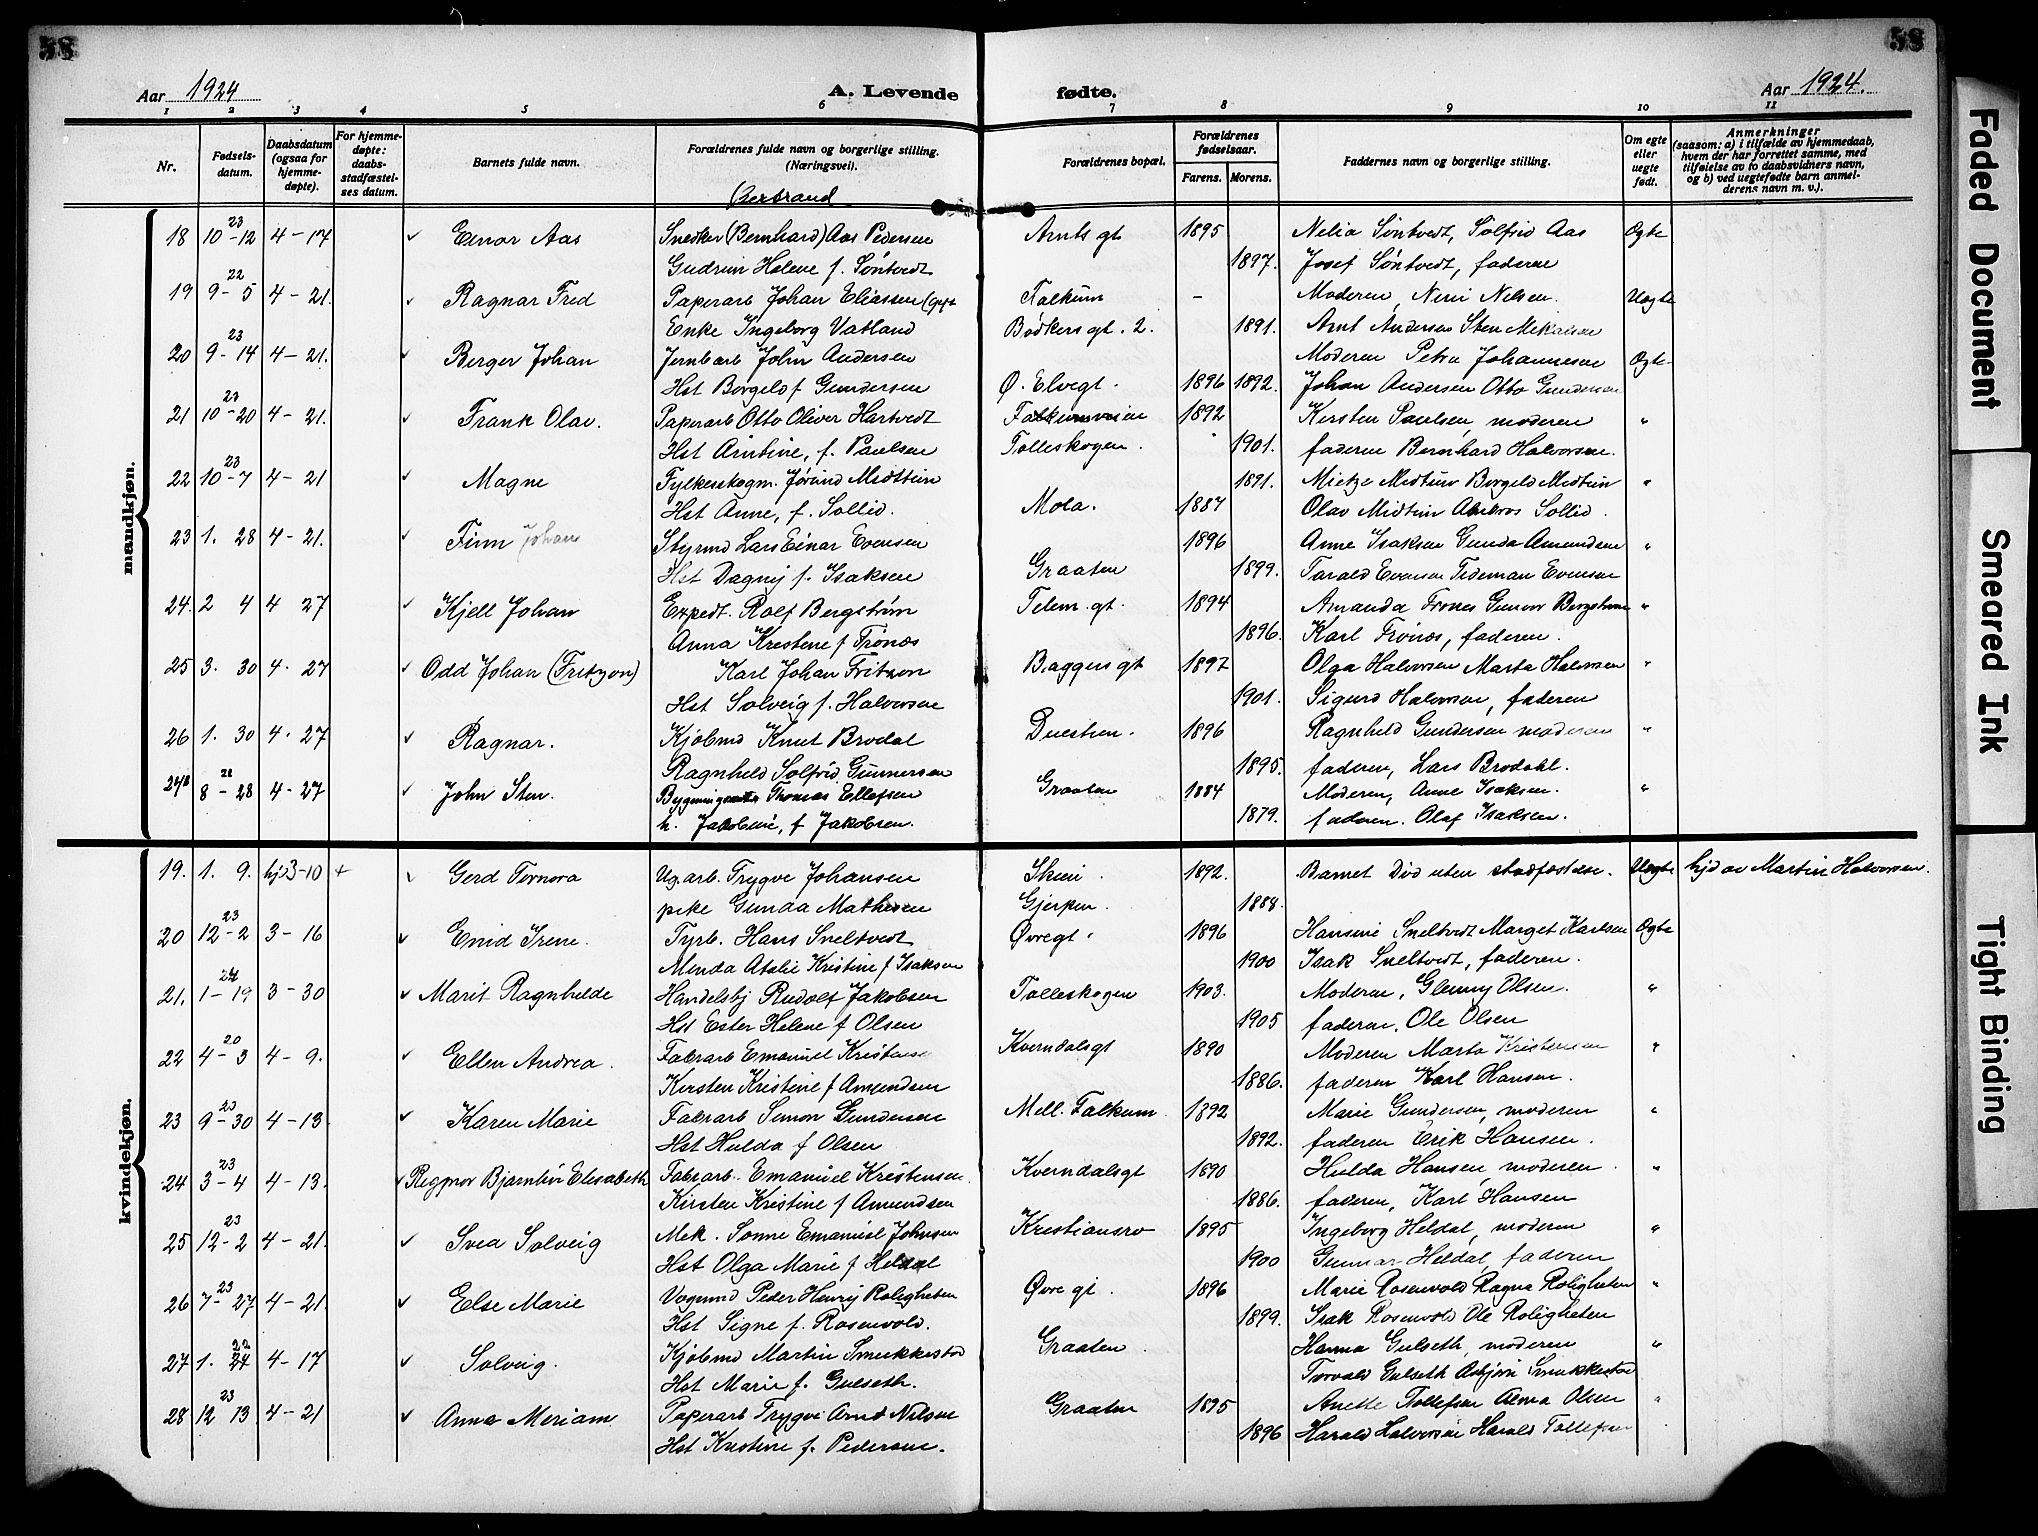 58
58
Aar 1924
A. Levende fødte.
Aar 1924.
1 2 3 4 5 6 7 8 9 10 11
Nr.
Fødsels-
datum.
Daabsdatum
(ogsaa for
hjemme-
døpte).
For hjemme-
døpte:
daabs-
stadfæstel-
ses datum.
Barnets fulde navn.
Forældrenes fulde navn og borgerlige stilling.
(Næringsvei).
Forældrenes bopæl.
Forældrenes
fødselsaar.
Farens. Morens.
Faddernes navn og borgerlige stilling.
Om egte
eller
uegte
født.
Anmerkninger
(saasom: a) i tilfælde av hjemmedaab,
hvem der har forrettet samme, med
tilføielse av to daabsvidners navn,
og b) ved uegtefødte barn anmel-
derens navn m. v.).
mandkjøn.
Bertrand
18 10-12 23 4-17 Einar Aas Snedker (Bernhard) Aas Pedersen Arnts gt 1895 Nelia Söntvedt, Solfrid Aas Egte
Gudrun Helene f. Söntvedt 1897. Josef Söntvedt, faderen
19 9-5 22 4-21. Ragnar Fred Paperarb Johan Eliassen (gift Falkum - Moderen, Nini Nelsen. Uegte
Enke Ingeborg Vatland Bödkers gt. 2. 1891. Arnt Andersen Sten Mikalsen
20 9-14 23 4-21. Berger Johan Jernbarb John Andersen Moderen Petra Johannesen Egte
Hst Borgeld f Gundersen Ø. Elvegt. 1896 1892. Johan Andersen Otto Gundersen
21 10-20 23 4-21. Frank Olav. Paperarb Otto Oliver Hartvedt Falkumveien 1892 Kirsten Paulsen, moderen "
Hst Arntine, f. Paulsen Tolleskogen. 1901. faderen Bernhard Halvorsen.
22 10-7 23 4-21 Magne Fylkesskogm. Jörund Midttun 1891. Mietze Midtun Borgeld Midtun "
Hst Anne, f. Sollid. Mola. 1887 Olav Midtun Sollid.
23 1. 28 4-21. Finn Johan Styrmd Lars Einar Evensen 1896 Anne Isaksen Gunda Amundsen "
Hst Dagny f. Isaksen Graaten 1899. Tarald Evensen Tideman Evensen
24. 2 4 4 27 Kjell Johan Expedt. Rolf Bergström Telem. gt. 1894 Amanda Trönes Gunvor Bergström "
Anna Kristine f Trönæs 1896. Karl Trönæs, faderen.
25 3. 30 4. 27 Odd Johan (Fritzon) Karl Johan Fritzon Baggers gt 1897 Olga Halvorsen Marta Halvorsen "
Hst Solveig f. Halvorsen 1901. Sigurd Halvorsen, faderen
26 1. 30 4. 27 Ragnar. Kjöbmd Knut Brodal Duestien. 1896 Ragnhild Gundersen moderen "
Ragnheld Solfrid Gunnersen 1895. faderen, Lars Brodahl.
8-28 21 4-27 John Sten. Thomas Ellefsen Graaten 1884 Moderen, Anne Isaksen. "
h. Jakobine, f Jakobsen. 1879. faderen. Olaf Isaksen.
kvindekjøn.
19. 1. 9. hj 3-10 + Gerd Tornora Ug. arb. Trygve Johansen Skien. 1892. Barnet Död uten stadfæstelse. Uegte hjd av Martin Halvorsen.
pike Gunda Mathisen Gjerpen. 1888.
20 12-2 23 3-16 Enid Irene. Tyrb. Hans Sneltvedt Øvregt. 1896 Hansine Sneltvedt Marget Karlsen Egte
Minda Atalie Kristine f Isaksen 1900 Isak Sneltvedt, faderen.
21. 1-19 24 3-30 Marit Ragnhelde Handelsbj Rudolf Jakobsen Tolleskogen 1903. Moderen, Glenny Olsen. "
Hst Ester Helene f Olsen 1905 faderen, Ole Olsen
22 4-3 20 4-9. Ellen Andrea. Fabrarb Emanuel Kristensen Kverndalsgt 1890 Moderen Marta Kristensen "
Kirsten Kristine f Amundsen 1886. faderen Karl Hansen.
23 9-30 23 4-13 Karen Marie Fabrarb Simon Gundersen Mell. Falkum 1892 Marie Gundersen, moderen "
Hst Hulda f Olsen 1892. faderen Erik Hansen.
24 3-4 23 4-13. Ragnor Bjarnlin Elisabeth Fabrarb. Emanuel Kristensen Kverndalsgt 1890 Hulda Hansen, moderen. "
Kirsten Kristine f Amundsen 1886. faderen, Karl Hansen
25 12-2 23 4-21. Svea Solveig Mek. Sonne Emanuel Johnsen Kristiansro 1895 Ingeborg Heldal, moderen "
Hst Olga Marie f Heldal 1900 Gunnar Heldal, faderen
26 7-27 23 4-21. Else Marie Vognmd Peder Henry Roligheten Øvre gt. 1896 Marie Rosenvold Ragna Roligheten "
Hst Signe f. Rosenvold. 1899. Isak Rosenvold Ole Roligheten
27 1. 24 22 4-17 Solveig. Kjöbmd Martin Smukkestad Graaten. Hanna Gulseth, moderen "
Hst Marie f. Gulseth. Torvald Gulseth Asbjörn Smukkestad
28 12 13 23 4-21 Anna Meriam Paperarb Trygve Arnd Nilsen Graaten 1895 Anette Tollefsen Alma Olsen "
Hst Kristine f. Pedersen. 1896 Harald Halvorsen Harald Tollefsen
Faded Document
Smeared Ink
Tight Binding